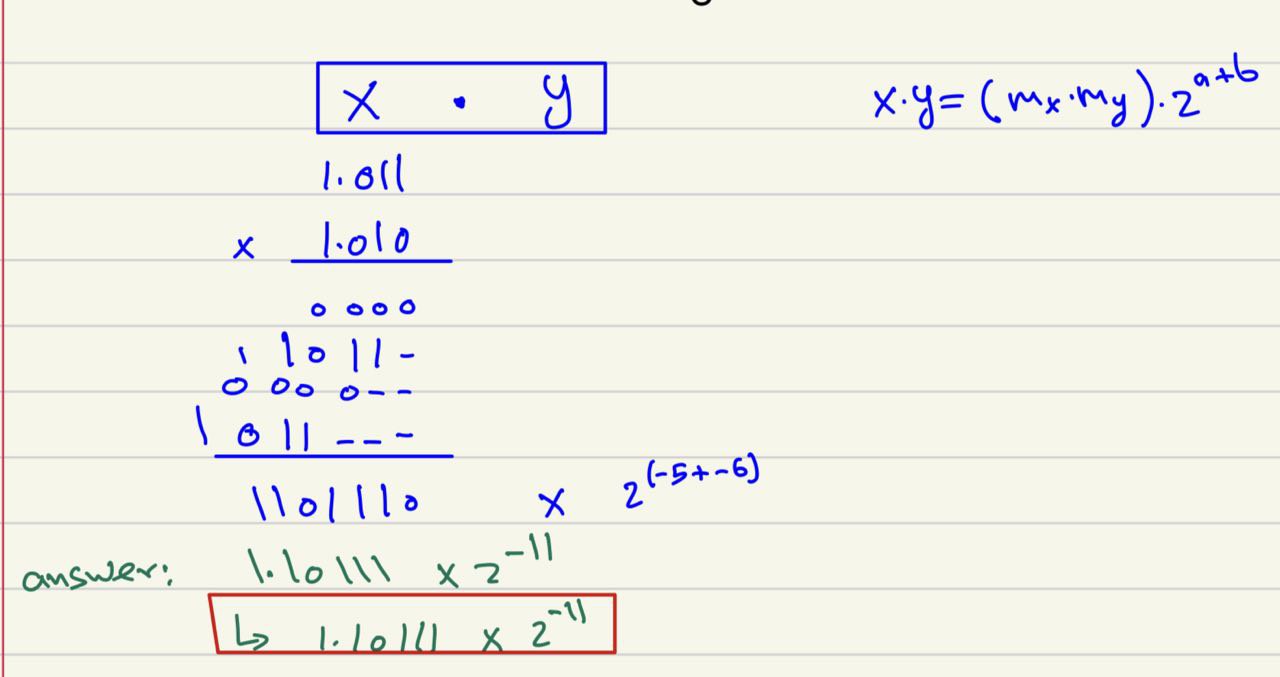 x · y
x·y = (mx·my)·2^a+b
1.011
x 1.010
0000
1 1011-
0000--
1011---
1101110 x 2^(-5+-6)
answer: 1.10111 x 2^-11
↳ 1.10111 x 2^-11